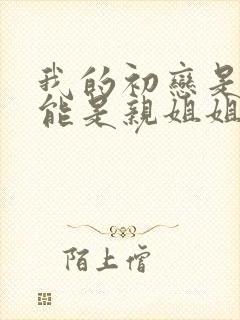 我的初戀是
能是親姐姐
陌上僧